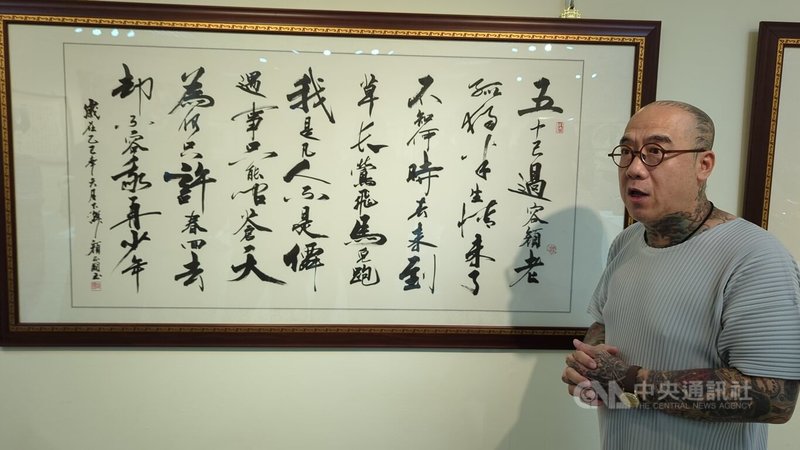 五十已過容顏老
孤獨半生情未了
不知何時春來到
草長鶯飛馬兒跑
我是凡人不是僊
遇事只能問蒼天
為何只許春回去
卻不容我再少年
歲在乙巳年六月
中央通訊社
THE CENTRAL NEWS AGENCY
CNA